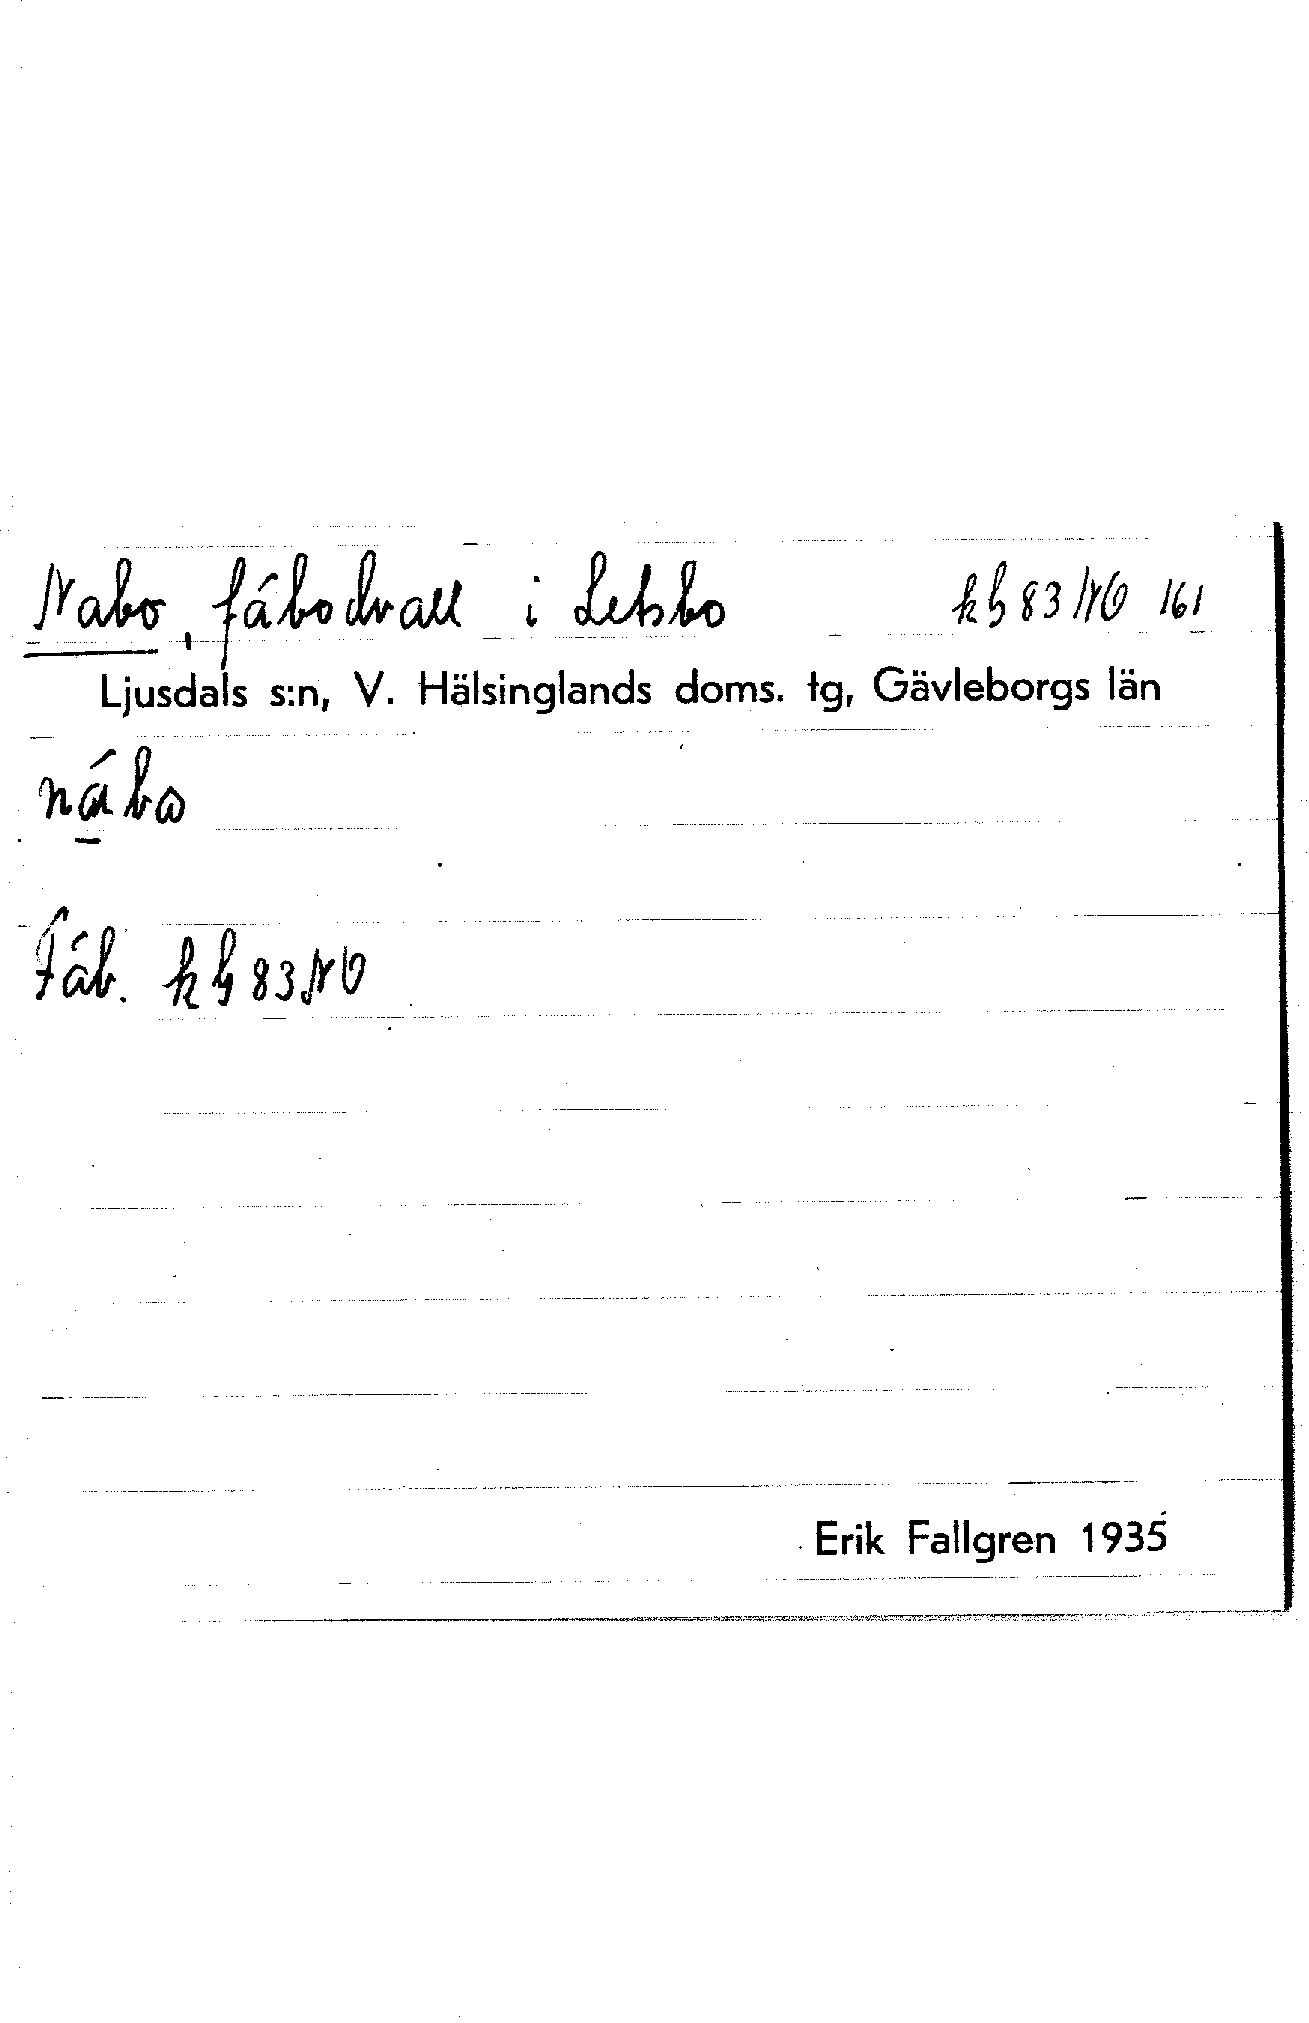 Nabo, fábodvall i Letsbo kb 83 NO 161
Ljusdals s:n, V. Hälsinglands doms. tg, Gävleborgs län
nába
Fáb. kb 83 NO
Erik Fallgren 1935